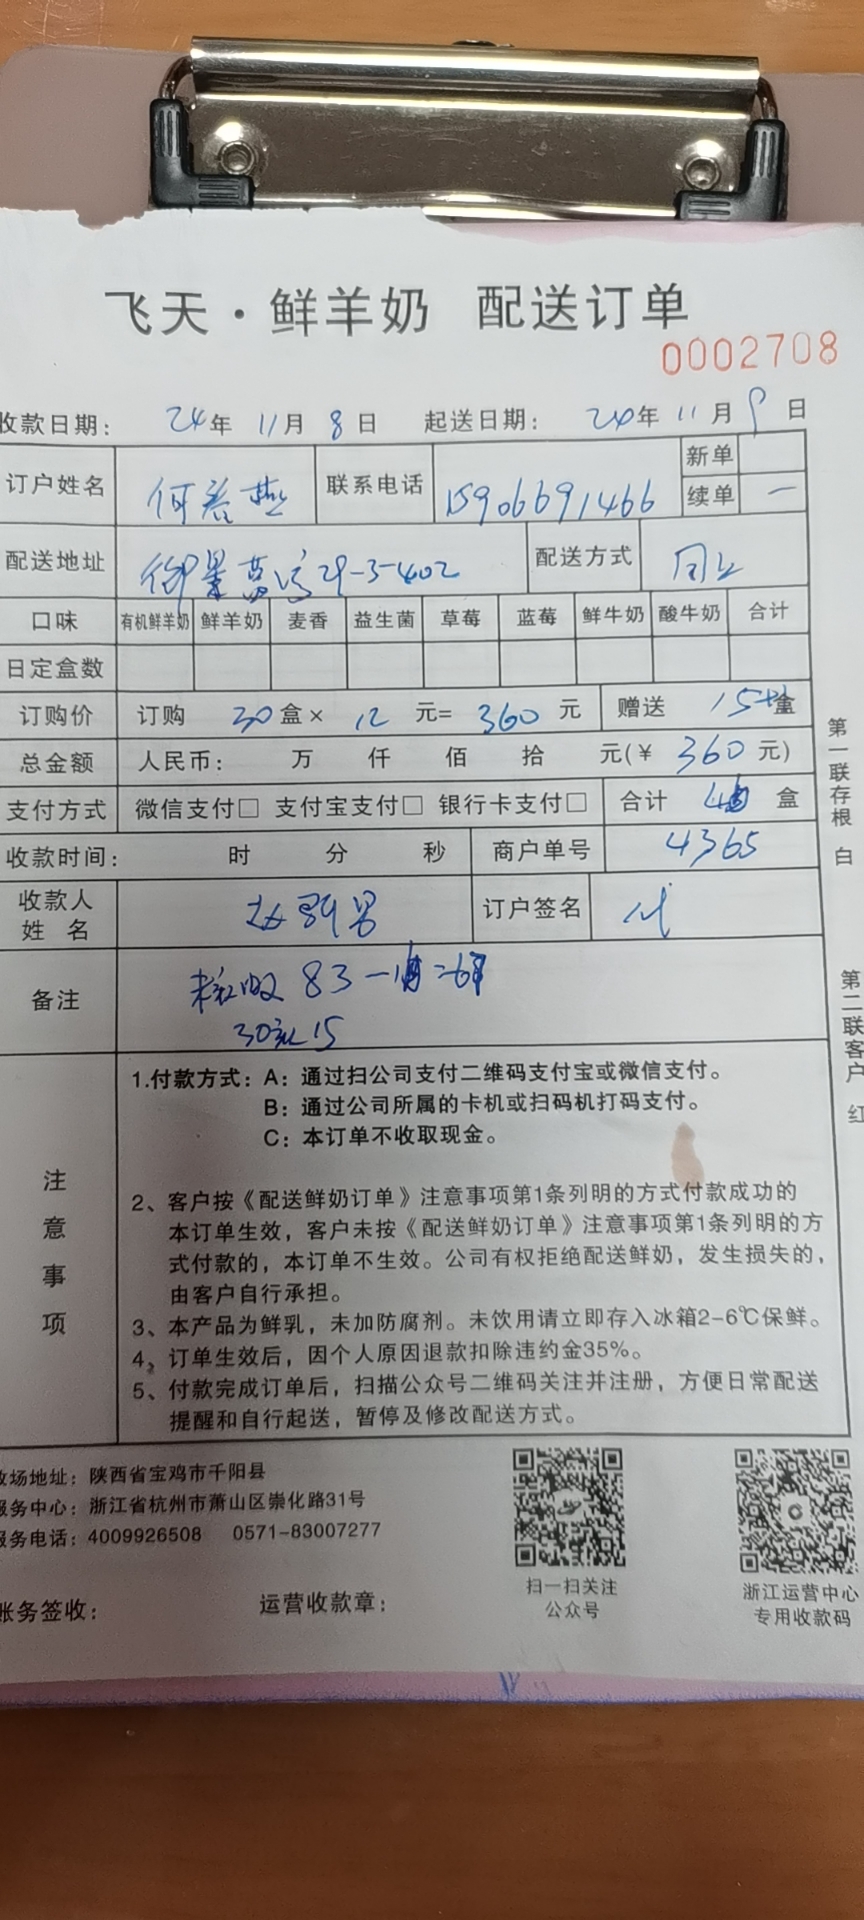 飞天·鲜羊奶 配送订单
0002708
收款日期: 24年 11月 8日 起送日期: 24年 11月 9日
订户姓名 何 燕 联系电话 15906691466 新单
续单 一
配送地址 御景蓝湾29-3-402 配送方式 同上
口味 有机鲜羊奶 鲜羊奶 麦香 益生菌 草莓 蓝莓 鲜牛奶 酸牛奶 合计
日定盒数
订购价 订购 30盒× 12 元= 360 元 赠送 15 盒
总金额 人民币: 万 仟 佰 拾 元(¥ 360元)
支付方式 微信支付□ 支付宝支付□ 银行卡支付□ 合计 盒
收款时间: 时 分 秒 商户单号 4365
收款人 姓名 赵 男 订户签名 代
备注 83一
30 15
注意事项
1.付款方式: A: 通过扫公司支付二维码支付宝或微信支付。
B: 通过公司所属的卡机或扫码机打码支付。
C: 本订单不收取现金。
2、客户按《配送鲜奶订单》注意事项第1条列明的方式付款成功的
本订单生效，客户未按《配送鲜奶订单》注意事项第1条列明的方
式付款的，本订单不生效。公司有权拒绝配送鲜奶，发生损失的，
由客户自行承担。
3、本产品为鲜乳，未加防腐剂。未饮用请立即存入冰箱2-6℃保鲜。
4、订单生效后，因个人原因退款扣除违约金35%。
5、付款完成订单后，扫描公众号二维码关注并注册，方便日常配送
提醒和自行起送，暂停及修改配送方式。
第一联存根 白
第二联客户 红
牧场地址: 陕西省宝鸡市千阳县
服务中心: 浙江省杭州市萧山区崇化路31号
服务电话: 4009926508 0571-83007277
扫一扫关注
公众号
浙江运营中心
专用收款码
账务签收: 运营收款章: